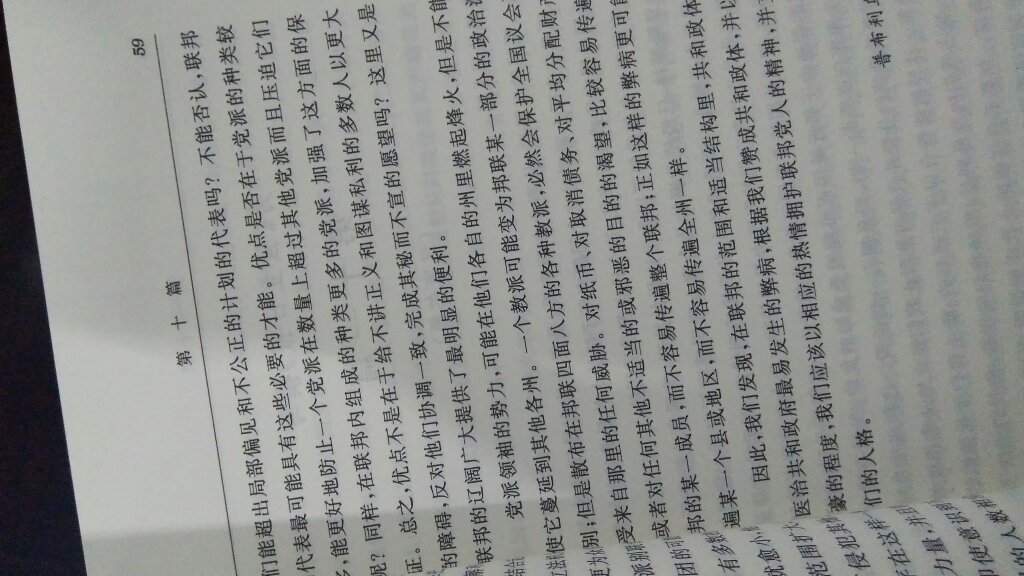 第十篇 59
们能超出局部偏见和不公正的计划的代表吗？不能否认，联邦
代表最可能具有这些必要的才能。优点是否在于党派的种类较
多，能更好地防止一个党派在数量上超过其他党派而且压迫它们
呢？同样，在联邦内组成的种类更多的党派，加强了这方面的保
证。总之，优点不是在于给不讲正义和图谋私利的多数人以更大
的障碍，反对他们协调一致，完成其秘而不宣的愿望吗？这里又是
联邦的辽阔广大提供了最明显的便利。
党派领袖的势力，可能在他们各自的州里燃起烽火，但是不能
使它蔓延到其他各州。一个教派可能变为邦联某一部分的政治派
别；但是散布在邦联四面八方的各种教派，必然会保护全国议会
受来自那里的任何威胁。对纸币、对取消债务、对平均分配财产
或者对任何其他不适当的或邪恶的目的的渴望，比较容易传遍
邦的某一成员，而不容易传遍整个联邦；正如这样的弊病更可能
遍某一个县或地区，而不容易传遍全州一样。
因此，我们发现，在联邦的范围和适当结构里，共和政体
医治共和政府最易发生的弊病，根据我们赞成共和政体，并以
豪的程度，我们应该以相应的热情拥护联邦党人的精神，并
们的人格。
普布利乌